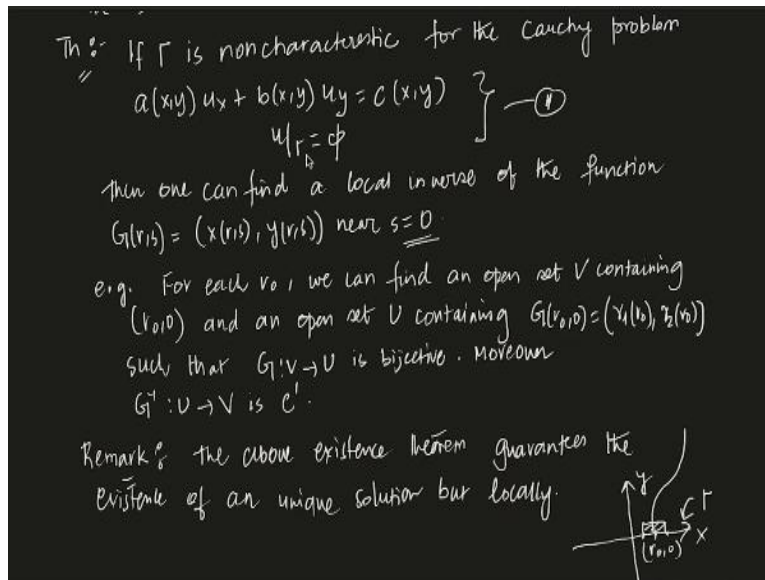 Th :- If Γ is noncharacteristic for the Cauchy problem
a(x,y) ux + b(x,y) uy = c(x,y)
u|Γ = φ
then one can find a local inverse of the function
G(r,s) = (x(r,s), y(r,s)) near s=0
e.g. For each r0, we can find an open set V containing
(r0,0) and an open set U containing G(r0,0) = (γ1(r0), γ2(r0))
such that G: V → U is bijective. Moreover
G⁻¹ : U → V is C¹.
Remark : the above existence theorem guarantees the
existence of an unique solution but locally.
y
Γ
x
(r0,0)